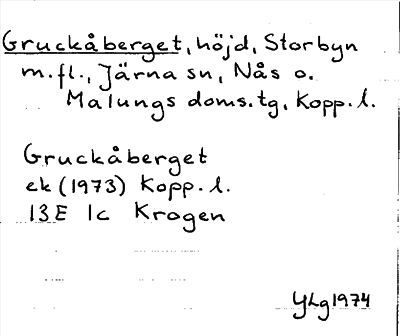 Gruckåberget, höjd, Storbyn
m.fl., Järna sn, Nås o.
Malungs doms.tg, Kopp.l.
Gruckåberget
ek (1973) Kopp.l.
13E 1c Krogen
YLg 1974